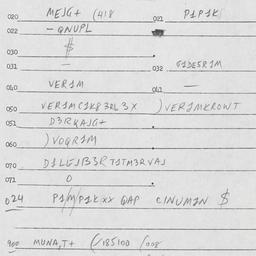 020 MEJG+ (418 021 P1P1K
022 -QNUPL
030 $
031 — 032 G1DE5R1M
040 VER1M 041 —
050 VER1MC1K8 3RL 3X )VER1MKROWT
051 D3RKAJG+
060 )VOQR1M
070 D1LEJB3R T1TM3RVAJ
071 0
024 P1/M/P1K XX QAP CINUM1N $
900 MUNA,T+ (/185100 /008